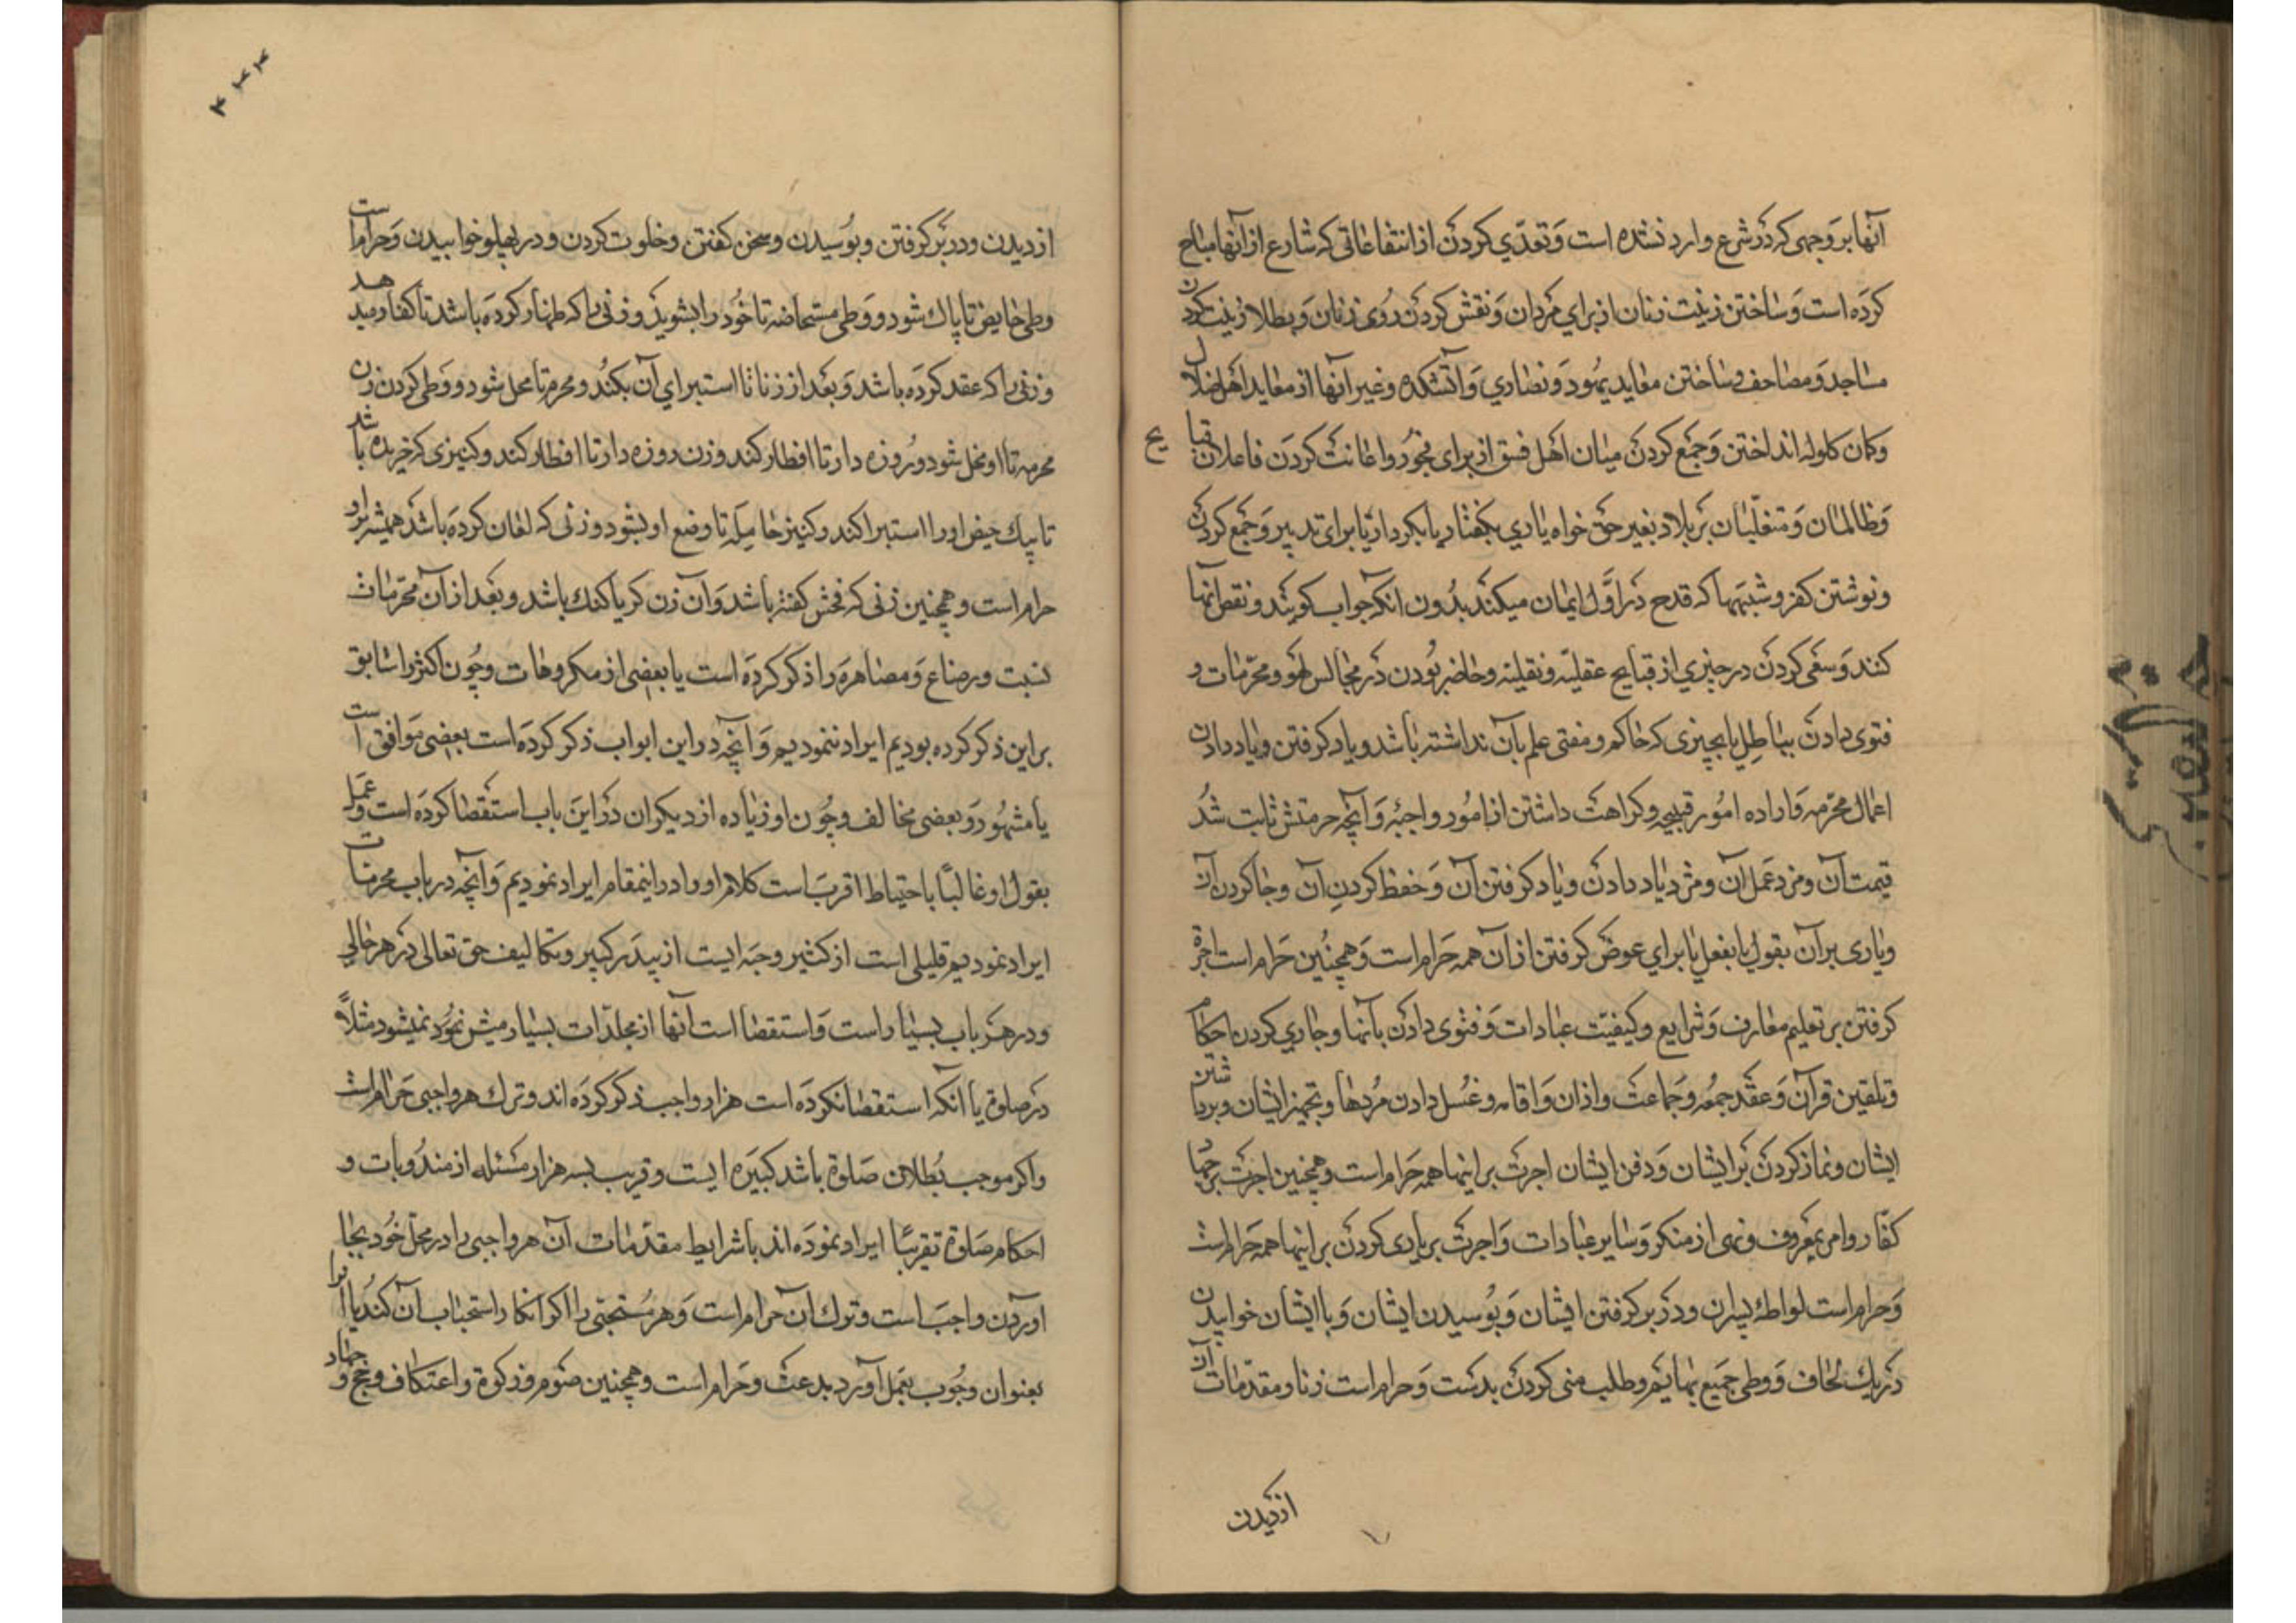 آنها بر وجهی که در شرع وارد نشده است و تعدّي کردن از انتفاعاتی که شارع از آنها مباح
کرده است و ساختن زینت زنان از برای مردان و نقش کردن روی زنان و بطلا زینت کردن
مساجد و مصاحف و ساختن معابد یهود و نصاري و آتشکده و غیر آنها از معابد اهل ضلال
وکمان کلوله انداختن و جمع کردن میان اهل فسق از برای فجور و اعانت کردن فاعلان قبایح
و ظالمان و متغلّبان بر بلاد بغیر حق خواه یاری بکفتار یا بکردار یا برای تدبیر و جمع کردن
و نوشتن کفر و شبهها که قدح در اوّل ایمان میکند بدون انکه جواب کویند و نقص انها
کنند و سعی کردن در چیزي از قبایح عقلیّه و نقلیّه و حاضر بودن در مجالس لهو و محرّمات و
فتوی دادن بباطل یا بچیزی که حاکم و مفتی علم بآن نداشته باشد و یاد کرفتن و یاد دادن
اعمال محرّمه و اراده امور قبیحه و کراهت داشتن از امور واجبه و آنچه حرمتش ثابت شد
قیمت آن و مزد عمل آن و مزد یاد دادن و یاد کرفتن آن و حفظ کردن آن و جا کردن آن
ویاری بر آن بقول یا بفعل یا برای عوض کرفتن از آن همه حرام است و همچنین حرام است اجرة
کرفتن بر تعلیم معارف و شرایع و کیفیّت عبادات و فتوی دادن بآنها و جاري کردن احکام
و تلقین قرآن و عقد جمعه و جماعت و اذان و اقامه و غسل دادن مردها و تجهیز ایشان و برداشتن
ایشان و نماز کردن بر ایشان و دفن ایشان اجرت بر اینها همه حرام است و همچنین اجرت بر جهاد
کفّار و امر بمعروف و نهی از منکر و سایر عبادات و اجرت بر یاری کردن بر اینها همه حرام است
و حرام است لواطه پسران و در بر کرفتن ایشان و بوسیدن ایشان و با ایشان خوابیدن
در یک لحاف و وطی جمیع بهایم و طلب منی کردن بدست و حرام است زنا و مقدّمات آن
از دیدن
از دیدن و در بر کرفتن و بوسیدن و سخن کفتن و خلوت کردن و در پهلو خوابیدن و حرام است
وطی حایض تا پاک شود و وطی مستحاضه تا خود را بشوید و زنی را که ظهار کرده باشد تا کفاره بدهد
و زنی را که عقد کرده باشد و بعد از زنا تا استبرای آن بکند و محرم تا محل شود و وطی کردن زن
محرمه تا او محل شود و روزه دار تا افطار کند و زن روزه دار تا افطار کند و کنیزی که خریده باشد
تا بیک حیض او را استبرا کند و کنیز حامله تا وضع او بشود و زنی که لعان کرده باشد همیشه بر او
حرام است و همچنین زنی که فحش کفته باشد و آن زن کر یا کنک باشد و بعد از آن محرّمات
نسبت و رضاع و مصاهره را ذکر کرده است یا بعضی از مکروهات و چون اکثر را سابق
بر این ذکر کرده بودیم ایراد ننمودیم و آنچه در این ابواب ذکر کرده است بعضی موافق است
یا مشهور و بعضی مخالف و چون او زیاده از دیکران در این باب استقصا کرده است و عمل
بقول او غالبًا باحتیاط اقرب است کلام او را در اینمقام ایراد نمودیم و آنچه در باب محرمات
ایراد نمودیم قلیلی است از کثیر و تکالیف حق تعالی در هر حالی
و در هر باب بسیار است و استقصا است آنها از مجلدّات بسیار میش نمود نمیشود مثلاً
در صلوة یا آنکه استقصا نکرده است هزار واجب ذکر کرده اند و ترک هر واجبی حرام است
و اکر موجب بطلان صلوة باشد کبیره ایست و قریب بسه هزار مسئله از مندوبات و
احکام صلوة تقریبًا ایراد نموده اند با شرایط مقدّمات آن هر واجبی را در محل خود بجا
اوردن واجب است و ترک آن حرام است و هر مستحبّی را اکر انکار استحباب آن کند یا آنرا
بعنوان وجوب بعمل آورد بدعت و حرام است و همچنین صوم و زکوة و اعتکاف و حج و جهاد